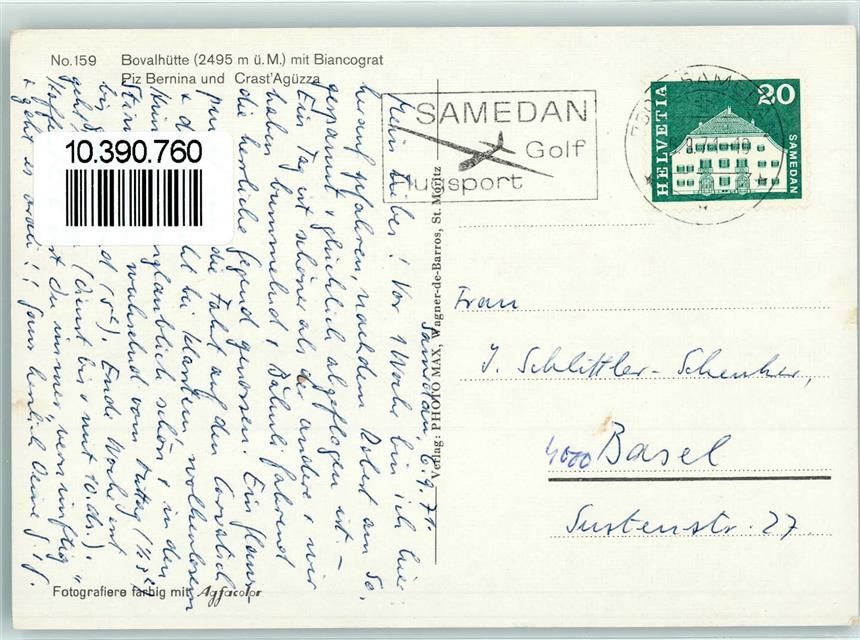 No. 159 Bovalhütte (2495 m ü. M.) mit Biancograt
Piz Bernina und Crast'Agüzza
10.390.760
SAMEDAN
Golf
lugsport
SAMEDA
HELVETIA
20
SAMEDAN
Verlag: PHOTO MAX, Wagner-de-Barros, St. Moritz
Samedan, 6.9.71.
Mein Liebes! Vor 1 Woche bin ich hier
herauf gefahren, nachdem Robert am So.
gespannt & glücklich abgeflogen ist –
Ein Tag ist schöner als der andere & wir
haben bummelnd & Bähnli fahrend
die herrliche Gegend genossen. Ein Glanz-
die Fahrt auf den Corvatsch
bei klarstem, wolkenlosem
unglaublich schön & in den
wechselnd vom Mittag
Ende Woche
(Dienst bis & mit 10. ds.).
Du immer „vernünftig"
& geht es ordeli! Ganz herzlich Deine
Frau
J. Schlittler-Schenker,
4000 Basel
Sustenstr. 27.
Fotografiere farbig mit Agfacolor